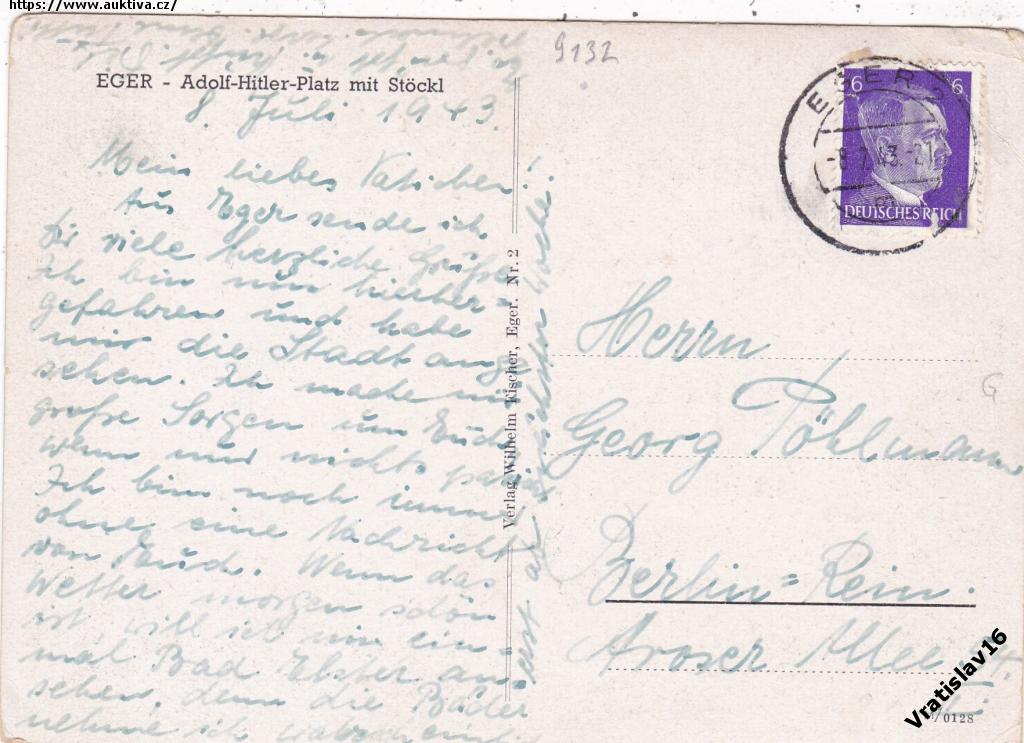 https://www.auktiva.cz/
9132
EGER - Adolf-Hitler-Platz mit Stöckl
8. Juli 1943.
Mein liebes Vatichen!
Aus Eger sende ich
Dir viele herzliche Grüße
Ich bin nun hierher-
gefahren und habe
mir die Stadt ange
sehen. Ich mache mir
große Sorgen um Euch
wenn nur nichts passiert
Ich bin noch immer
ohne eine Nachricht
von Euch. Wenn das
Wetter morgen schön
ist, will ich mir ein-
mal Bad Elster an-
sehen, denn die Bäder
nehme ich wahrscheinlich
erst ab nächster Woche.
Verlag Wilhelm Kischer, Eger. Nr. 2
EGER 2
-8.7.43.-21
6 6
DEUTSCHES REICH
Herrn
Georg Pöhlmann
Berlin=Rein.
Aroser Allee
G
Vratislav16
/0128